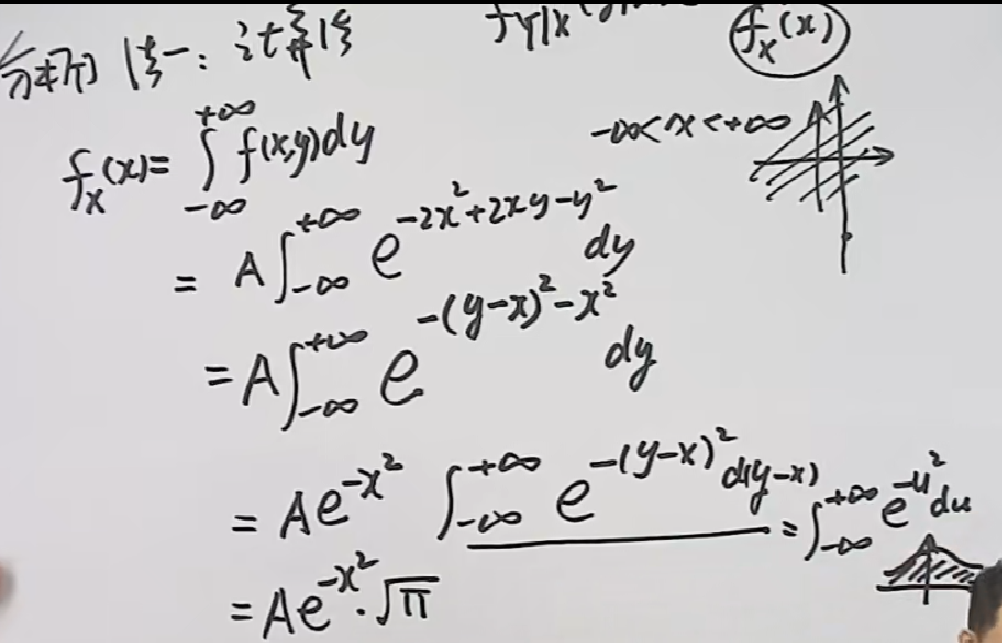 分析 法一：计算法
f_X(x)
f_X(x)=∫_{-∞}^{+∞} f(x,y)dy
-∞<x<+∞
= A∫_{-∞}^{+∞} e^{-2x²+2xy-y²} dy
= A∫_{-∞}^{+∞} e^{-(y-x)²-x²} dy
= Ae^{-x²} ∫_{-∞}^{+∞} e^{-(y-x)²} d(y-x) = ∫_{-∞}^{+∞} e^{-u²} du
= Ae^{-x²}·√π